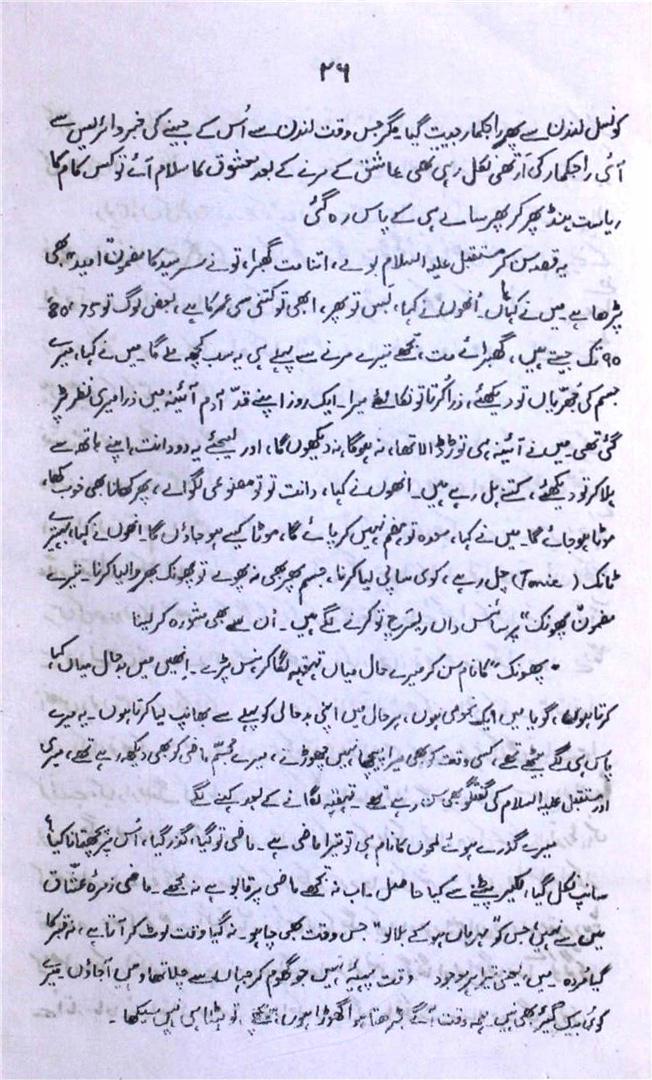 ۲۶
کونسل لندن سے پھر راجکمار جیت گیا۔ مگر جس وقت لندن سے اُس کے جیتنے کی خبر وائرلیس سے
آئی راجکمار کی ارتھی نکل رہی تھی عاشق کے مرنے کے بعد معشوق کا سلام آئے تو کس کام کا
ریاست پھر سالے ہی کے پاس رہ گئی
یہ قصہ سن کر مستقبل علیہ السلام بولے، اتنا مت گھبرا، تو نے سرسید کا مضمون "امید" بھی
پڑھا ہے میں نے کہا ہاں۔ اُنھوں نے کہا، بس تو پھر، ابھی تو کتنی سی عمر کا ہے، بعض لوگ تو 75، 80،
۹۰ تک جیتے ہیں، گھبرائے مت، تجھے تیرے مرنے سے پہلے ہی یہ سب کچھ ملے گا۔ میں نے کہا، میرے
جسم کی جھریاں تو دیکھئے، ذرا کُرتا تو نکالئے میرا۔ ایک روز اپنے قدِّ آدم آئینہ میں ذرا میری نظر پڑ
گئی تھی۔ میں نے آئینہ ہی توڑ ڈالا تھا، نہ ہوگا نہ دیکھوں گا، اور لیجئے یہ دو دانت، اپنے ہاتھ سے
ہلا کر تو دیکھئے، کتنے ہل رہے ہیں۔ انھوں نے کہا، دانت تو تو مصنوعی لگوا لے، پھر کھانا بھی خوب کھا،
موٹا ہو جائے گا۔ میں نے کہا، معدہ تو ہضم نہیں کر پائے گا، موٹا کیسے ہو جاؤں گا انھوں نے کہا، بہتیرے
ٹانک (Tonic) چل رہے، کوئی سا پی لیا کرنا، جسم پھر بھی نہ پھولے تو پھونک بھروا لیا کرنا۔ تیرے
مضمون "پھونک" پر سائنس داں ریسرچ تو کرنے لگے ہیں۔ اُن سے بھی مشورہ کر لینا
"پھونک" کا نام سن کر میرے حال میاں قہقہہ لگا کر ہنس پڑے۔ انھیں میں بدحال میاں کہا،
کرتا ہوں، گویا میں ایک نجومی ہوں، ہر حال میں اپنی بدحالی کو پہلے سے بھانپ لیا کرتا ہوں۔ یہ میرے
پاس ہی لگے بیٹھے تھے، کسی وقت کو بھی میرا پیچھا نہیں چھوڑتے، میرے مجسّم ماضی کو بھی دیکھ رہے تھے، میری
اور مستقبل علیہ السلام کی گفتگو بھی سن رہے تھے۔ قہقہہ لگانے کے بعد کہنے لگے
میرے گذرے ہوئے لمحوں کا نام ہی تو تیرا ماضی ہے۔ ماضی تو گیا، گذر گیا، اُس پر پچھتانا کیا،
سانپ نکل گیا، لکیر پیٹنے سے کیا حاصل۔ اب نہ مجھے ماضی پر قابو ہے نہ تجھے۔ ماضی زمرۂ عشّاق
میں سے نہیں، جس کو "مہرباں ہو کے بلا لو" جس وقت بھی چاہو۔ نہ گیا وقت لوٹ کر آتا ہے، نہ قبر کا
گیا مُردہ۔ میں، یعنی تیرا ہر موجود وقت پہیّہ نہیں جو گھوم کر جہاں سے چلا تھا وہیں آ جاؤں میرے
کوئی بیک گیئر بھی نہیں۔ میں وقت آگے بڑھتا ہوا گھوڑا ہوں، پیچھے تو ہٹنا ہی نہیں سیکھا۔